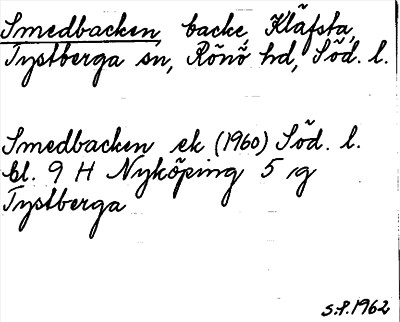 Smedbacken, backe, Kläfsta,
Tystberga sn, Rönö hd, Söd. l.
Smedbacken ek (1960) Söd. l.
bl. 9 H Nyköping 5 g
Tystberga
S.P. 1962